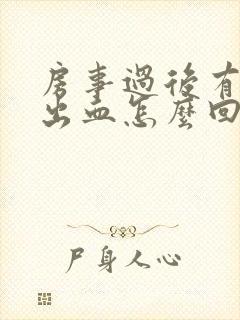 房事過後有
出血怎麼回
尸身人心